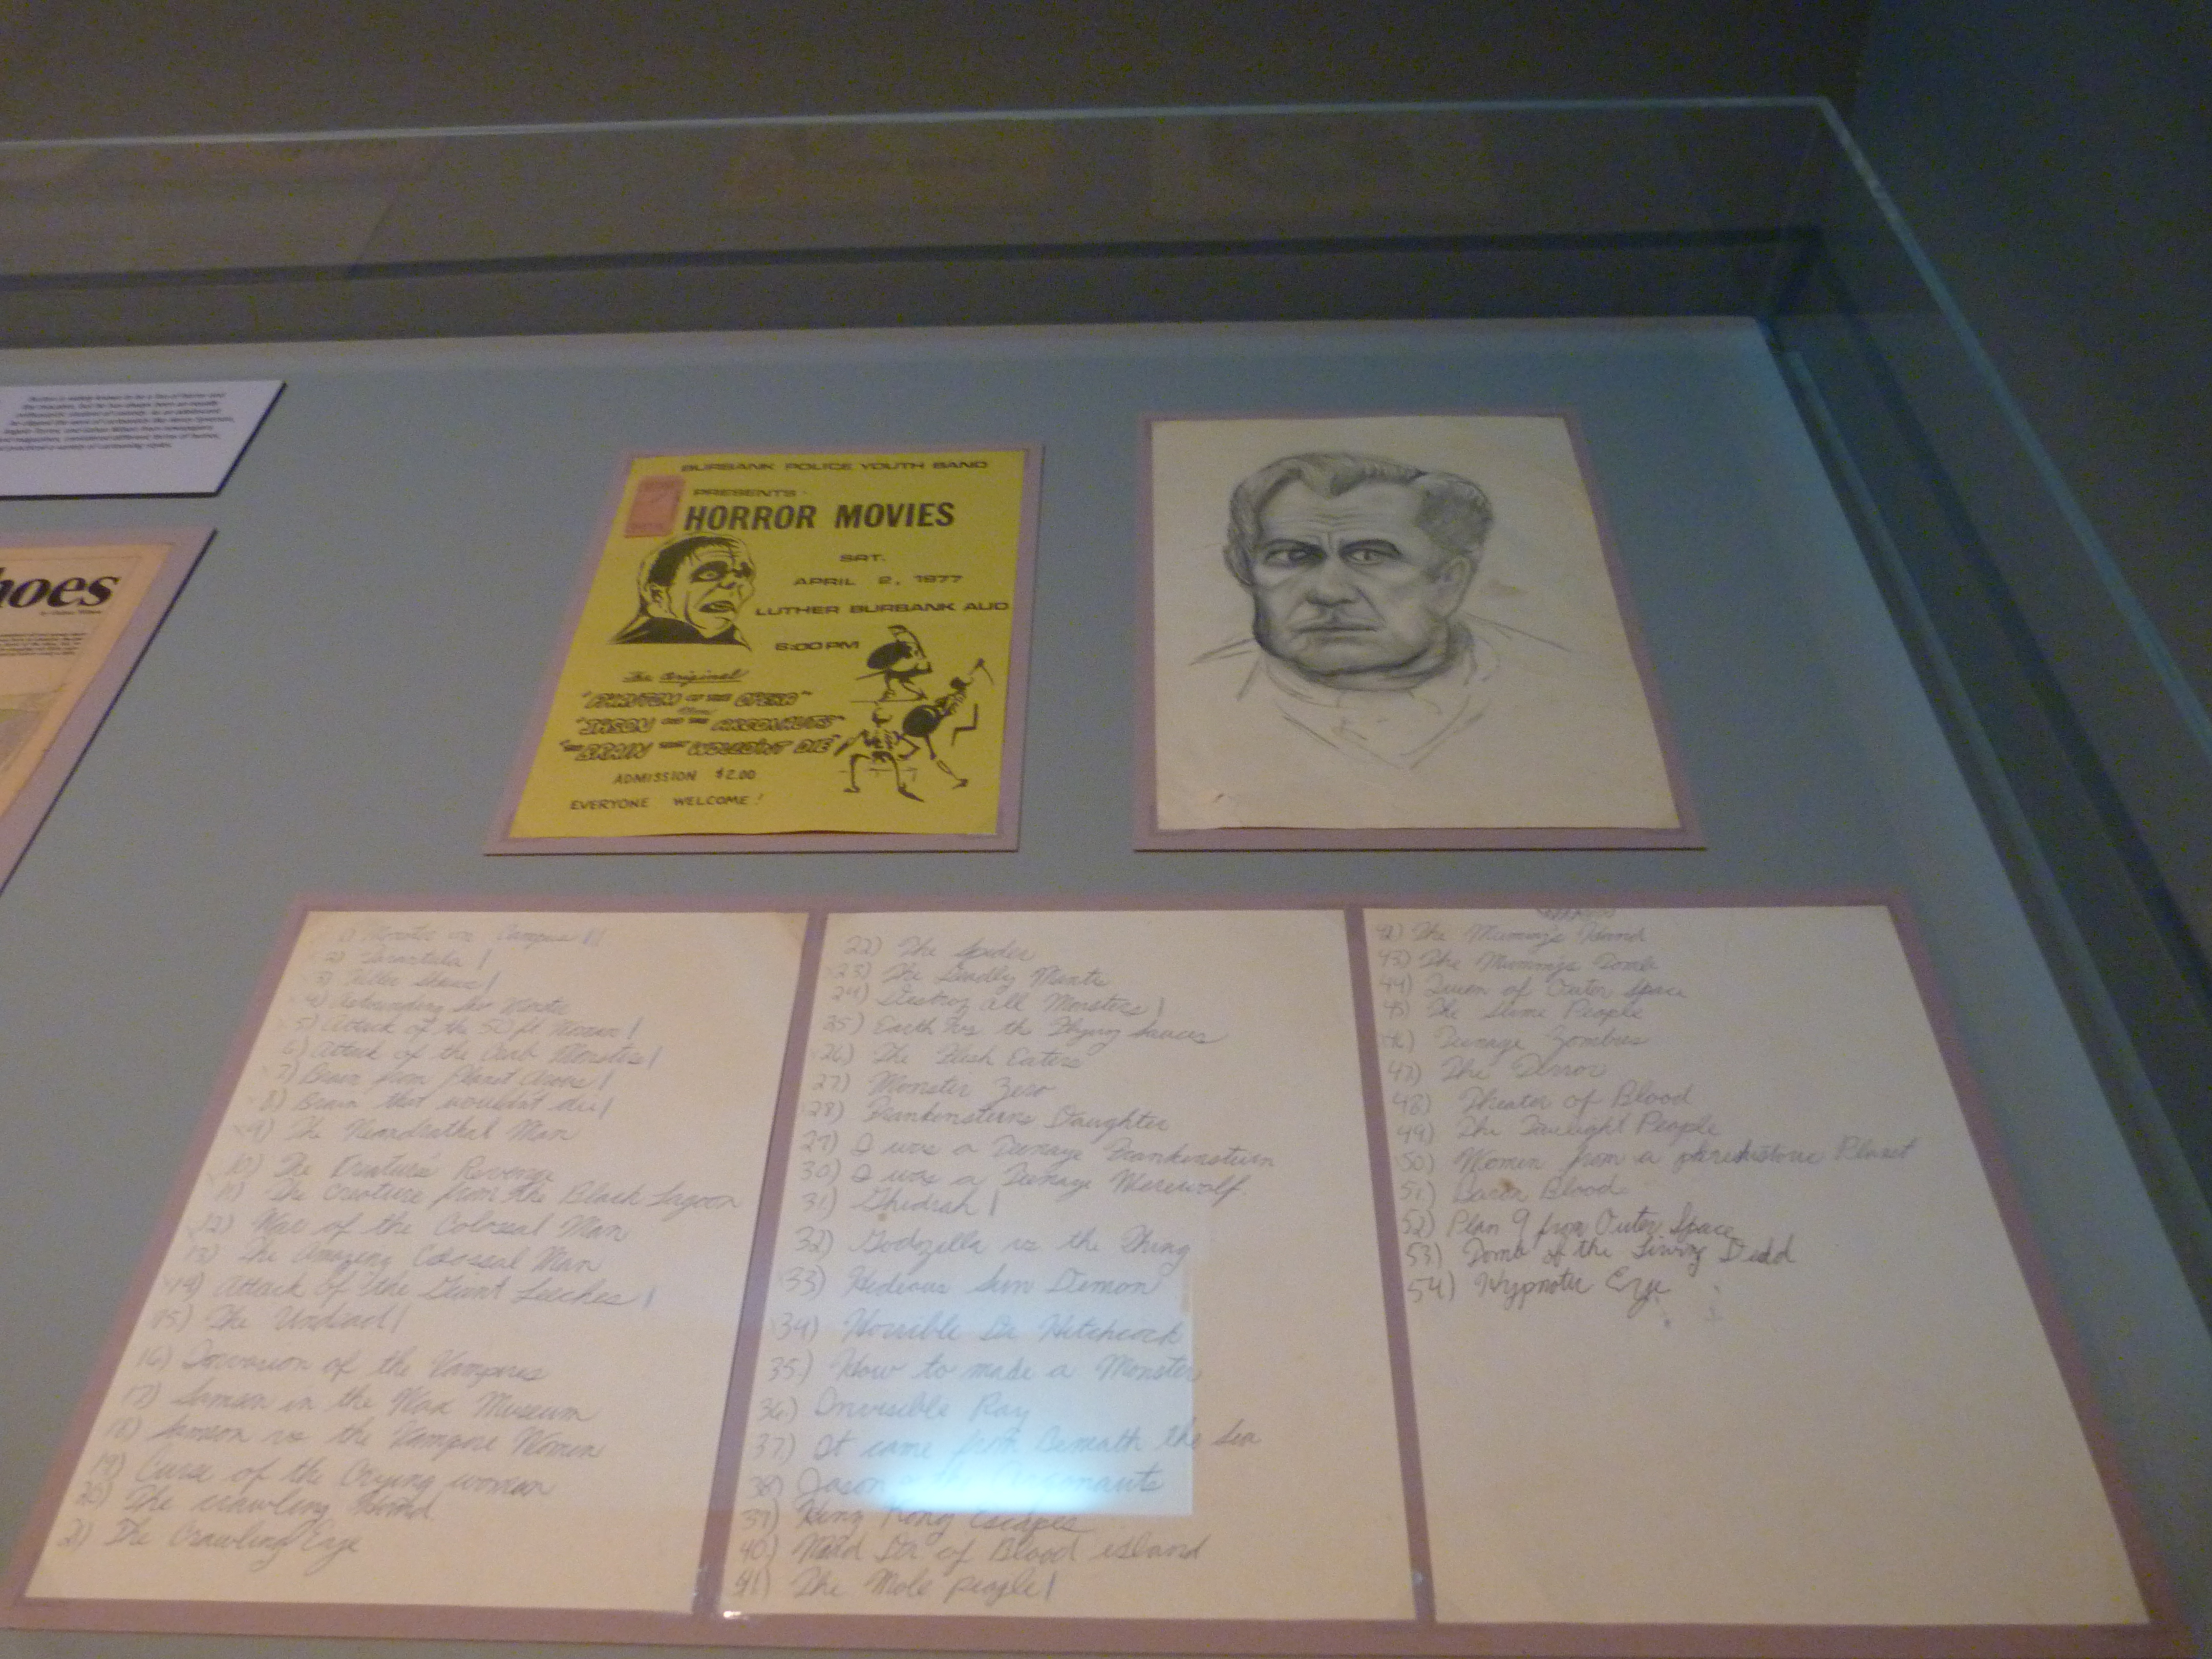 Burton is widely known to be a fan of horror and
the macabre, but he has always been an equally
enthusiastic student of comedy. As an adolescent
he clipped the work of cartoonists like
and Gahan Wilson from newspapers
and magazines, considered different forms of humor,
and practiced a variety of cartooning styles.
hoes
by Gahan Wilson
BURBANK POLICE YOUTH BAND
PRESENTS
HORROR MOVIES
SAT.
APRIL 2, 1977
LUTHER BURBANK AUD
6:00 PM
The Original
"PHANTOM OF THE OPERA"
"JASON AND THE ARGONAUTS"
"THE BRAIN THAT WOULDN'T DIE"
ADMISSION $2.00
EVERYONE WELCOME!
1) Monster on Campus !!
2) Tarantula !
3) Killer Shrews !
4) Astounding She Monster
5) Attack of the 50 ft Woman !
6) Attack of the Crab Monsters !
7) Brain from Planet Arous !
8) Brain that wouldnt die !
9) The Neanderthal Man
10) The Creature's Revenge
11) The Creature from the Black Lagoon
12) War of the Colossal Man
13) The Amazing Colossal Man
14) Attack of the Giant Leeches !
15) The Undead !
16) Invasion of the Vampires
17) Samson in the Wax Museum
18) Samson vs the Vampire Women
19) Curse of the Crying woman
20) The crawling Hand
21) The Crawling Eye
22) The Spider
23) The Deadly Mantis
24) Destroy all Monsters !
25) Earth vs the Flying Saucers
26) The Flesh Eaters
27) Monster Zero
28) Frankensteins Daughter
29) I was a Teenage Frankenstein
30) I was a Teenage Werewolf
31) Ghidrah !
32) Godzilla vs the Thing
33) Hideous Sun Demon
34) Horrible Dr Hitchcock
35) How to made a Monster
36) Invisible Ray
37) It came from Beneath the Sea
38) Jason the Argonauts
39) King Kong Escapes
40) Mad Dr of Blood island
41) The Mole people !
42) The Mummy's Hand
43) The Mummys Tomb
44) Queen of Outer Space
45) The Slime People
46) Teenage Zombies
47) The Terror
48) Theater of Blood
49) The Twilight People
50) Women from a prehistoric Planet
51) Baron Blood
52) Plan 9 from Outer Space
53) Tomb of the Living Dead
54) Hypnotic Eye